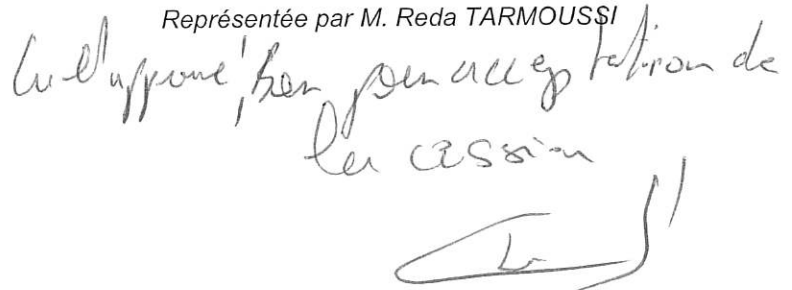 Représentée par M. Reda TARMOUSSI
Lu et approuvé, bon pour acceptation de
la cession